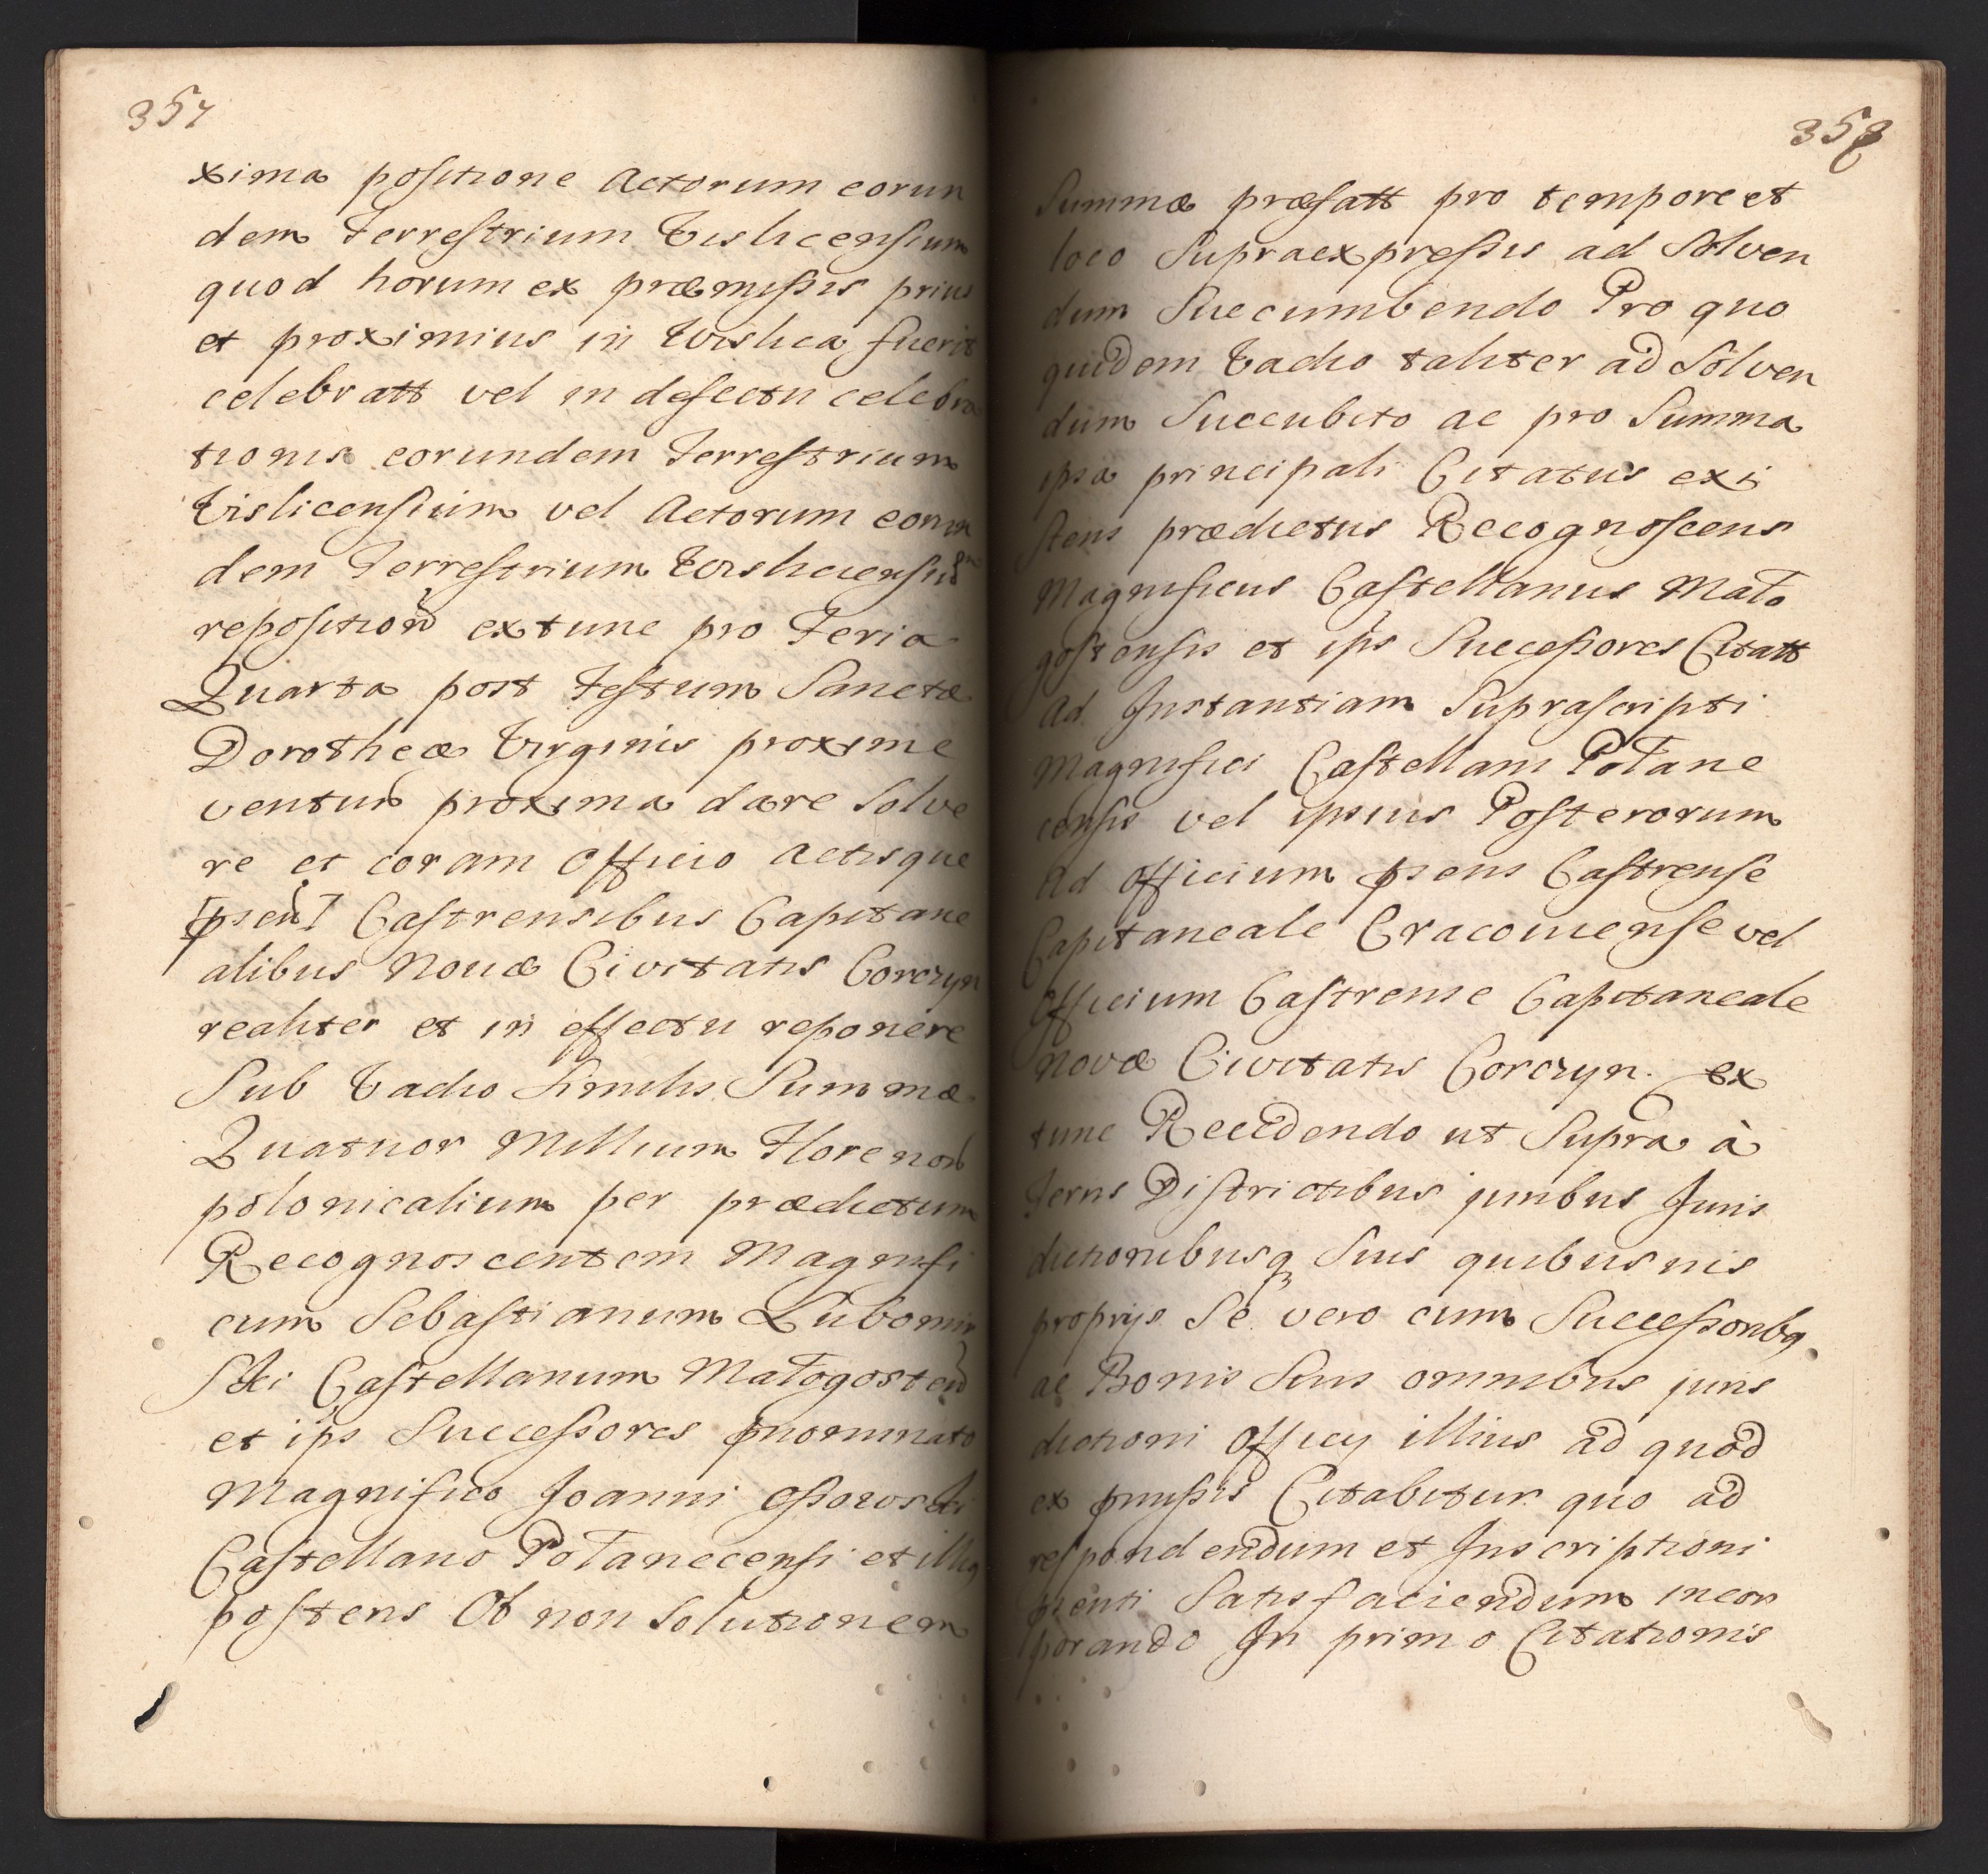 357
xima positione Actorum eorun
dem Terrestrium Vislicensium
quod horum ex præmissis prius
et proximius in Vislica fuerit
celebratt vel in defectu celebra
tionis eorundem Terrestrium
Vislicensium vel Actorum eorun
dem Terrestrium Vislicien
reposition extunc pro Feria
Quarta post Festum Sanctæ
Dorotheæ Virginis proxime
ventur proxima dare Solve
re et coram Officio Actisque
[psen] Castrensibus Capitane
alibus Novæ Civitatis Corczyn
realiter et in effectu reponere
Sub Vadio Similis Summæ
Quatuor Millium Floreno
polonicalium per prædictum
Recognoscentem Magnifi
cum Sebastianum Lubomir
Ski Castellanum Małogosten
et ips Successores pnominato
Magnifico Joanni
Castellano Połanecensi et illiq
posteris Ob non Solutionem
358
Summæ præfatt pro tempore et
loco Supraexpressis ad Solven
dum Succumbendo Pro quo
quidem Vadio taliter ad Solven
dum Succubito ac pro Summa
ipsa principali Citatus exi
stens prædictus Recognoscens
Magnificus Castellanus Mało
gostensis et ips Successores Citatt
Ad Instantiam Suprascripti
Magnifici Castellani Połane
censis vel ipsius Posterorum
Ad Officium psens Castrense
Capitaneale Cracoviense vel
Officium Castrense Capitaneale
Novæ Civitatis Corczyn. ex
tunc Recedendo ut Supra à
Terris Districtibus juribus Juris
dictionibusq Suis quibusvis
proprijs Se vero cum Successoribq
ac Bonis Suis omnibus juris
dictioni Officy illius ad quod
ex pmissis Citabitur quo ad
respondendum et Inscriptioni
psenti Satisfaciendum incor
porando In primo Citationis